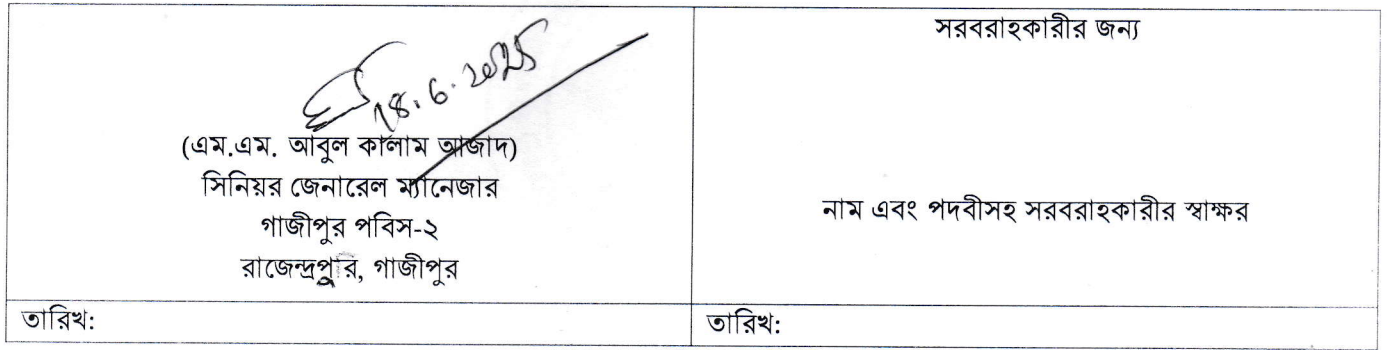 18.6.2025
(এম.এম. আবুল কালাম আজাদ)
সিনিয়র জেনারেল ম্যানেজার
গাজীপুর পবিস-২
রাজেন্দ্রপুর, গাজীপুর
তারিখ:
সরবরাহকারীর জন্য
নাম এবং পদবীসহ সরবরাহকারীর স্বাক্ষর
তারিখ: